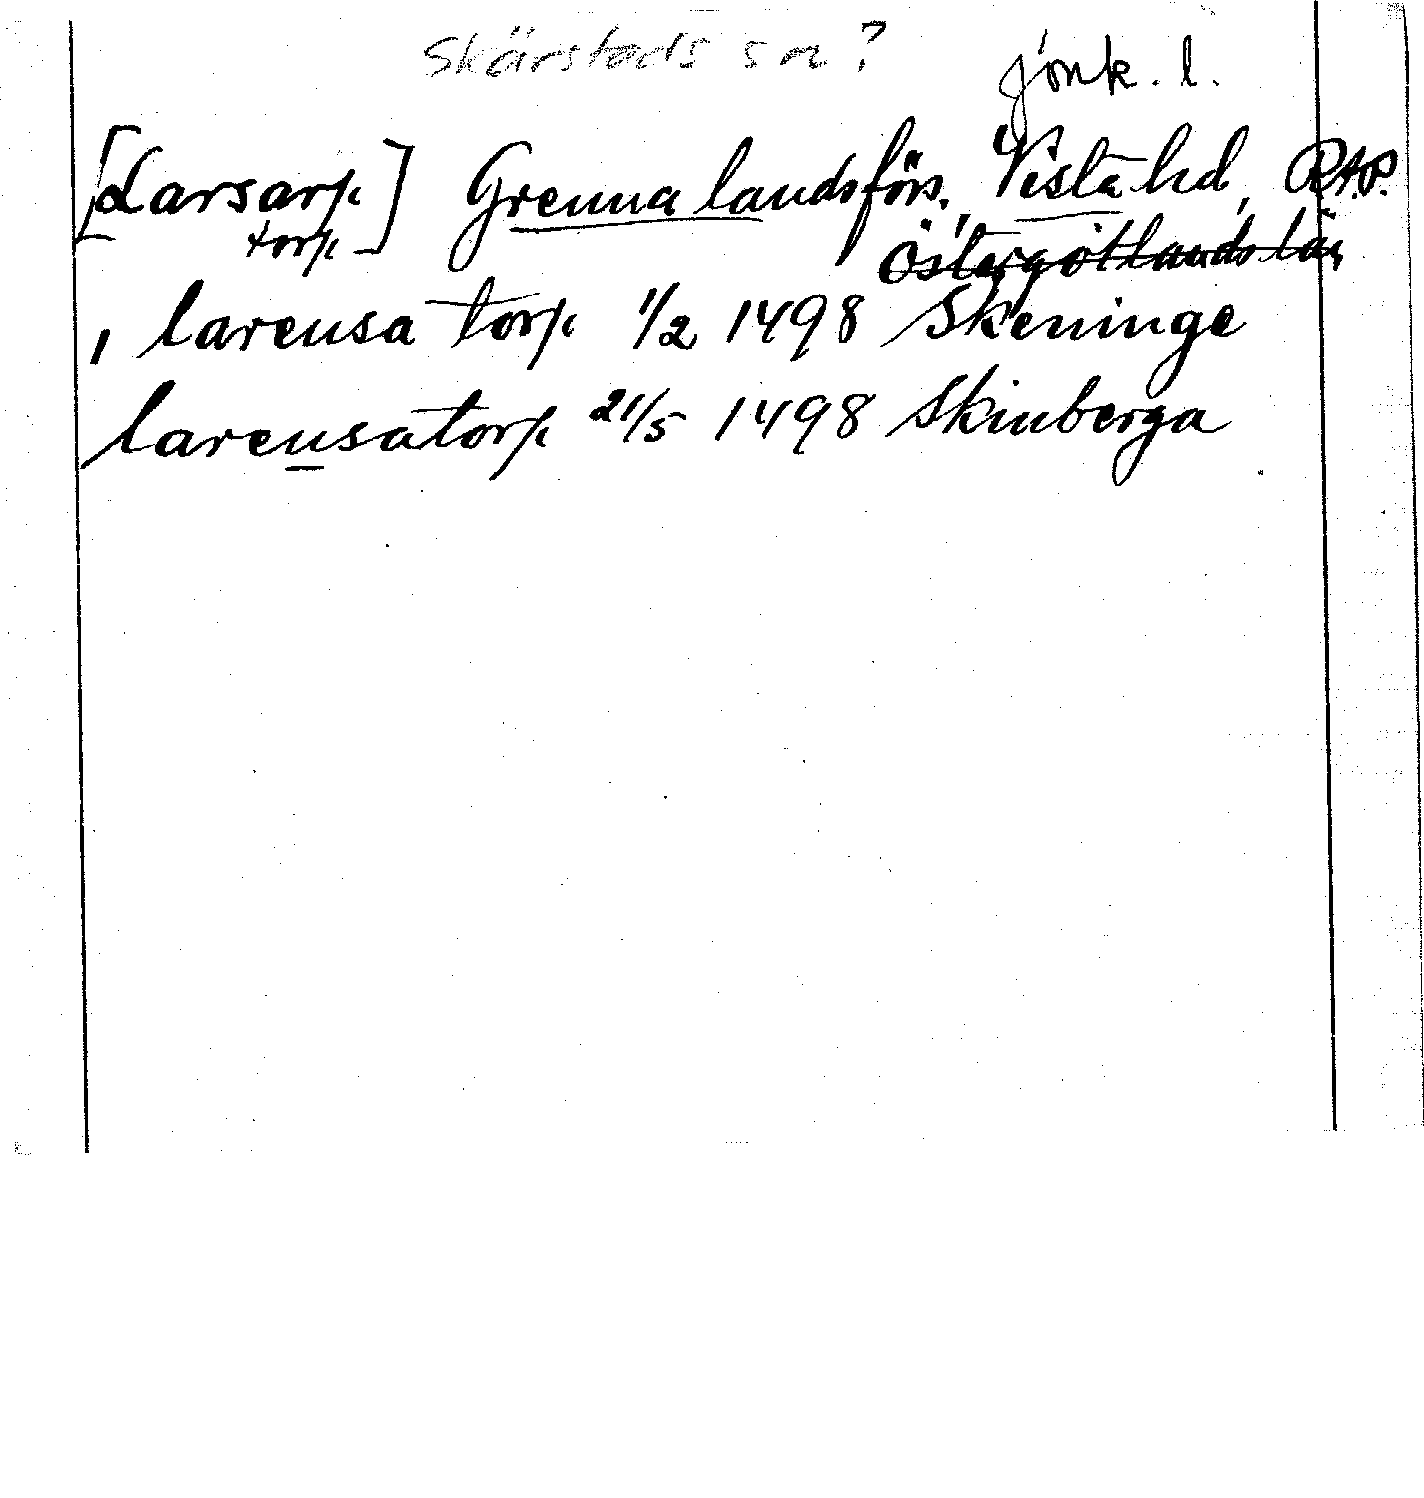 Skärstads sn?
Jönk. l.
[Larsarp
torp] Grenna landsförs. Vista hd, RAP.
Östergötlands län
, larensa torp 1/2 1498 Skeninge
larensatorp 21/5 1498 Skinberga